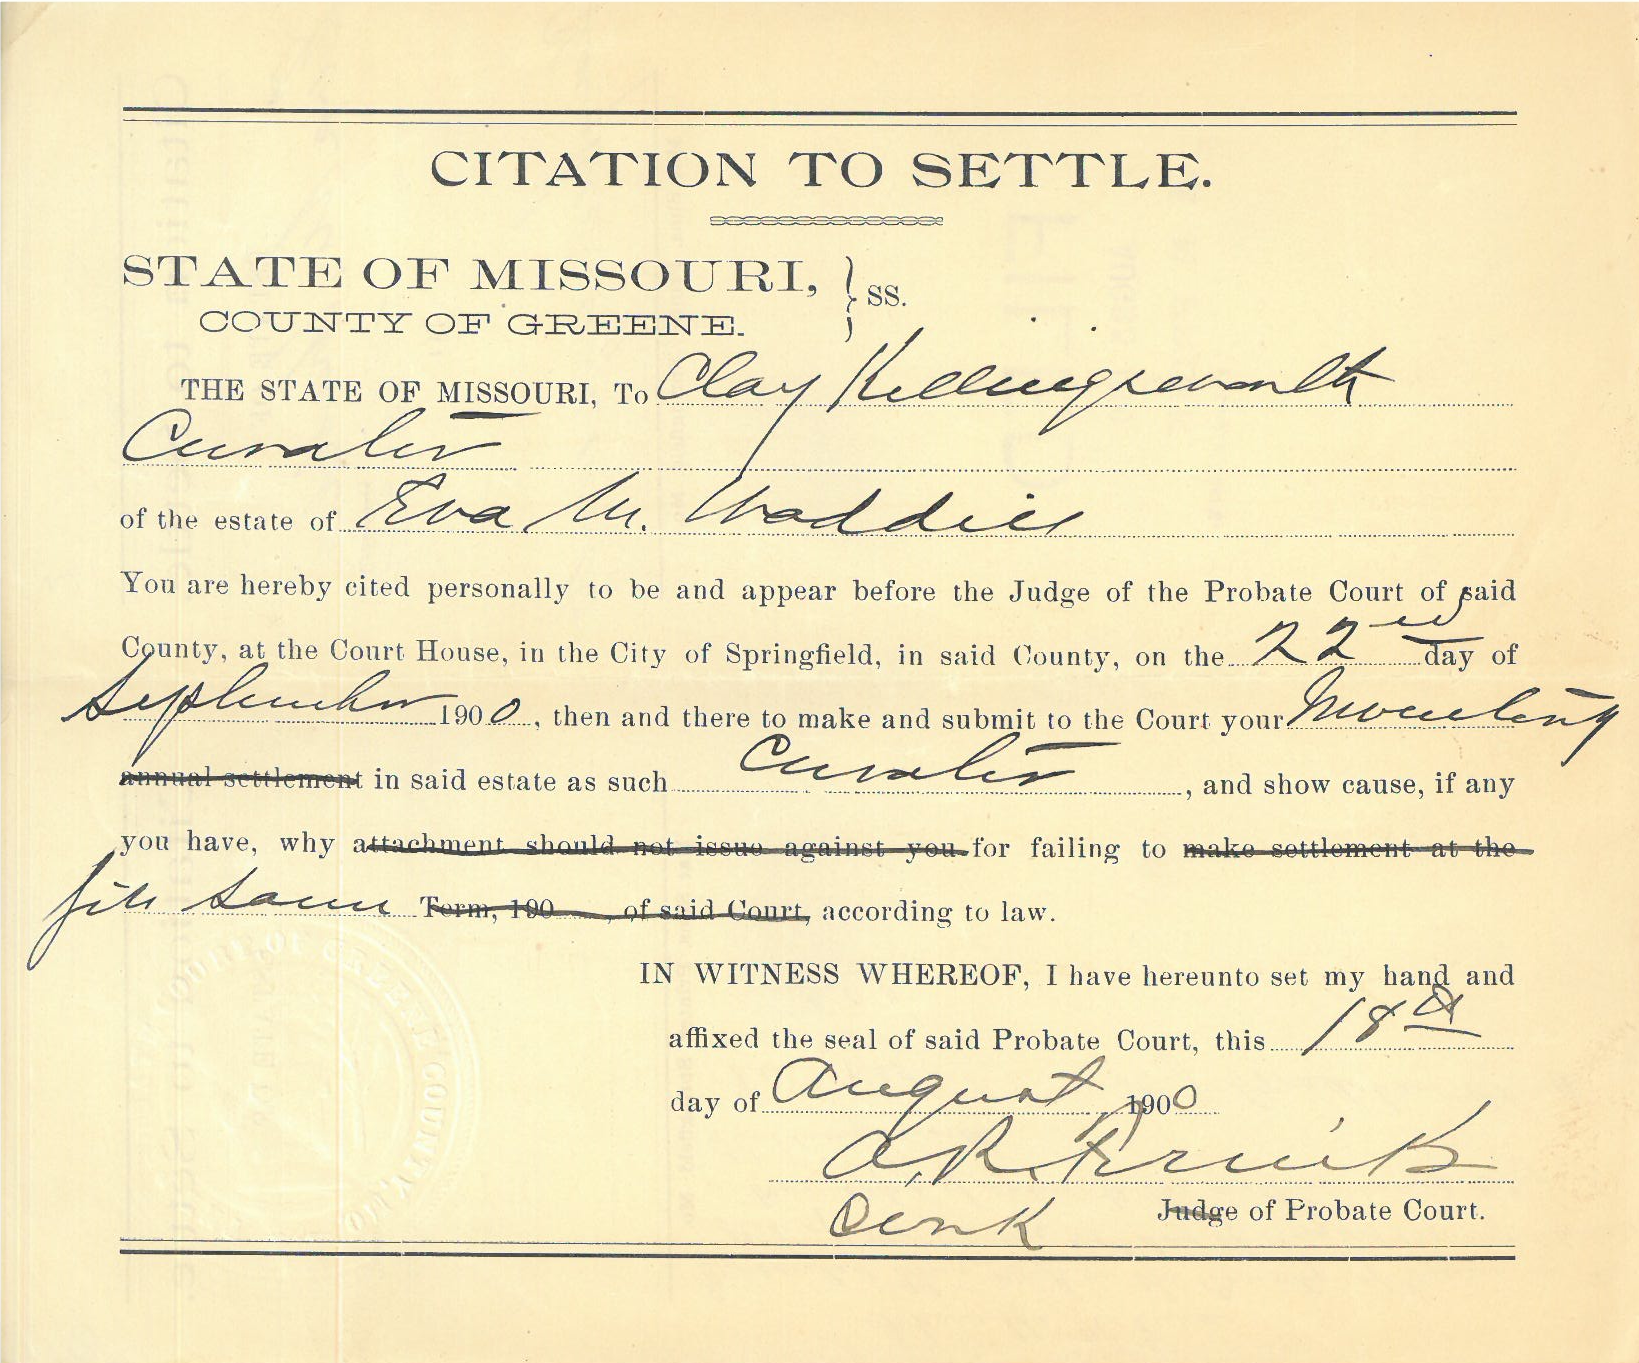 CITATION TO SETTLE.
STATE OF MISSOURI, } ss.
COUNTY OF GREENE.
THE STATE OF MISSOURI, To Clay Killingsworth
Curator
of the estate of Eva M. Waddill
You are hereby cited personally to be and appear before the Judge of the Probate Court of said
County, at the Court House, in the City of Springfield, in said County, on the 22nd day of
September 1900, then and there to make and submit to the Court your Inventory
annual settlement in said estate as such Curator, and show cause, if any
you have, why attachment should not issue against you for failing to make settlement at the
file same Term, 190 , of said Court, according to law.
IN WITNESS WHEREOF, I have hereunto set my hand and
affixed the seal of said Probate Court, this 18th
day of August 1900
A. R.
Clerk Judge of Probate Court.
COURT OF GREENE COUNTY, MO